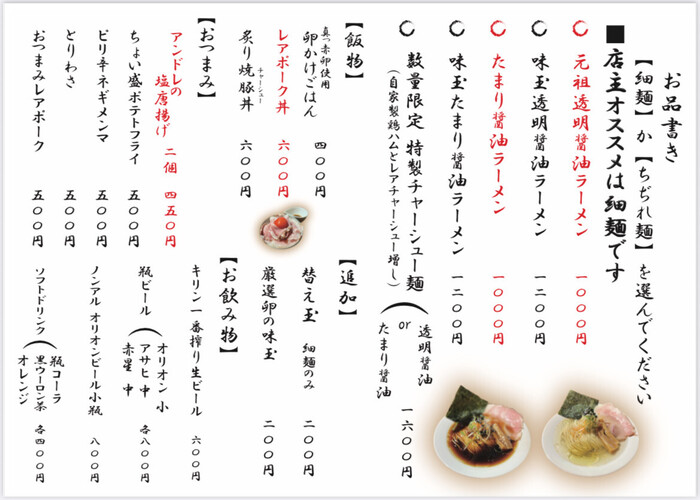 お品書き
【細麺】か【ちぢれ麺】を選んでください
■店主オススメは細麺です
元祖透明醤油ラーメン 一〇〇〇円
味玉透明醤油ラーメン 一二〇〇円
たまり醤油ラーメン 一〇〇〇円
味玉たまり醤油ラーメン 一二〇〇円
数量限定 特製チャーシュー麺
(自家製鶏ハムとレアチャーシュー増し)
(透明醤油 or たまり醤油 一六〇〇円
【飯物】
真っ赤卵使用
卵かけごはん 四〇〇円
レアポーク丼 六〇〇円
炙り焼豚丼 六〇〇円
チャーシュー
【おつまみ】
アンドレの
塩唐揚げ 二個 四五〇円
ちょい盛ポテトフライ 五〇〇円
ピリ辛ネギメンマ 五〇〇円
とりわさ 五〇〇円
おつまみレアポーク 五〇〇円
【追加】
替え玉 細麺のみ 二〇〇円
厳選卵の味玉 二〇〇円
【お飲み物】
キリン一番搾り生ビール 六〇〇円
瓶ビール(オリオン 小
アサヒ 中
赤星 中 各八〇〇円
ノンアル オリオンビール小瓶 八〇〇円
ソフトドリンク(瓶コーラ
黒ウーロン茶
オレンジ 各四〇〇円